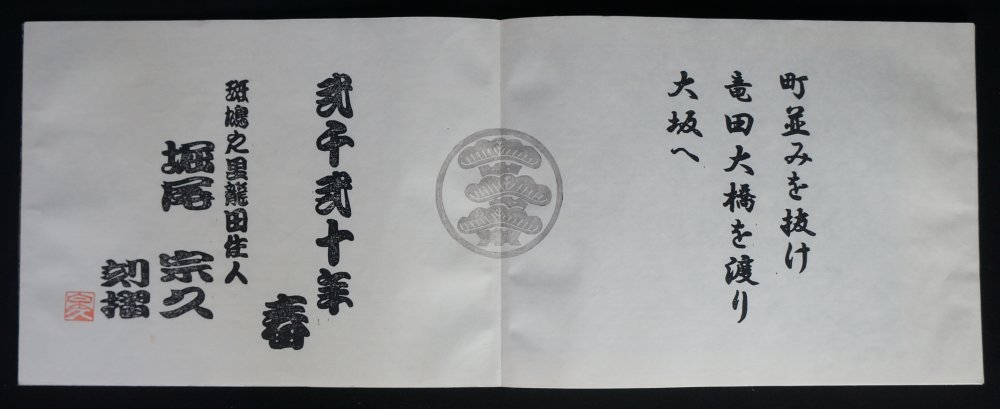 町並みを抜け
竜田大橋を渡り
大坂へ
弐千弐十年
春
斑鳩之里龍田住人
堀尾 宗久
刻摺
宗久